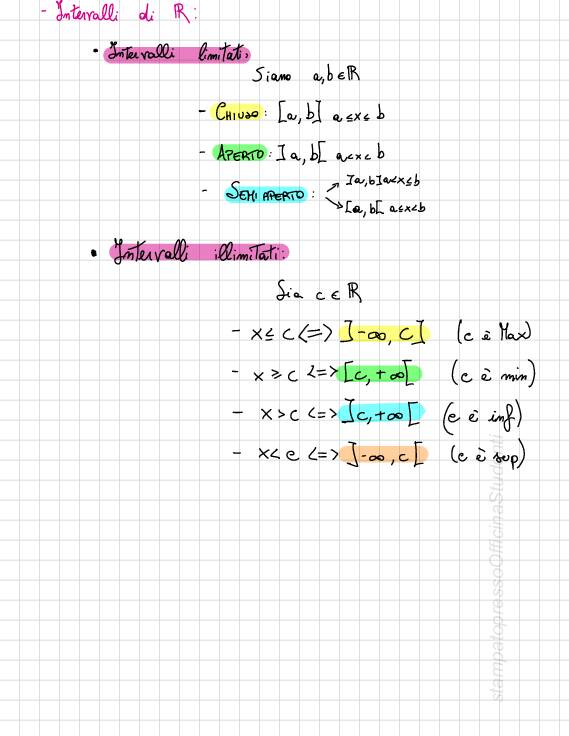 - Intervalli di ℝ:
• Intervalli limitati:
Siano a,b ∈ ℝ
- CHIUSO: [a,b] a≤x≤b
- APERTO: ]a,b[ a<x<b
- SEMIAPERTO: ↗ ]a,b] a<x≤b
↘ [a,b[ a≤x<b
• Intervalli illimitati:
Sia c ∈ ℝ
- x≤c <=> ]-∞, c] (c è Max)
- x≥c <=> [c,+∞[ (c è min)
- x>c <=> ]c,+∞[ (c è inf)
- x<c <=> ]-∞,c[ (c è sup)